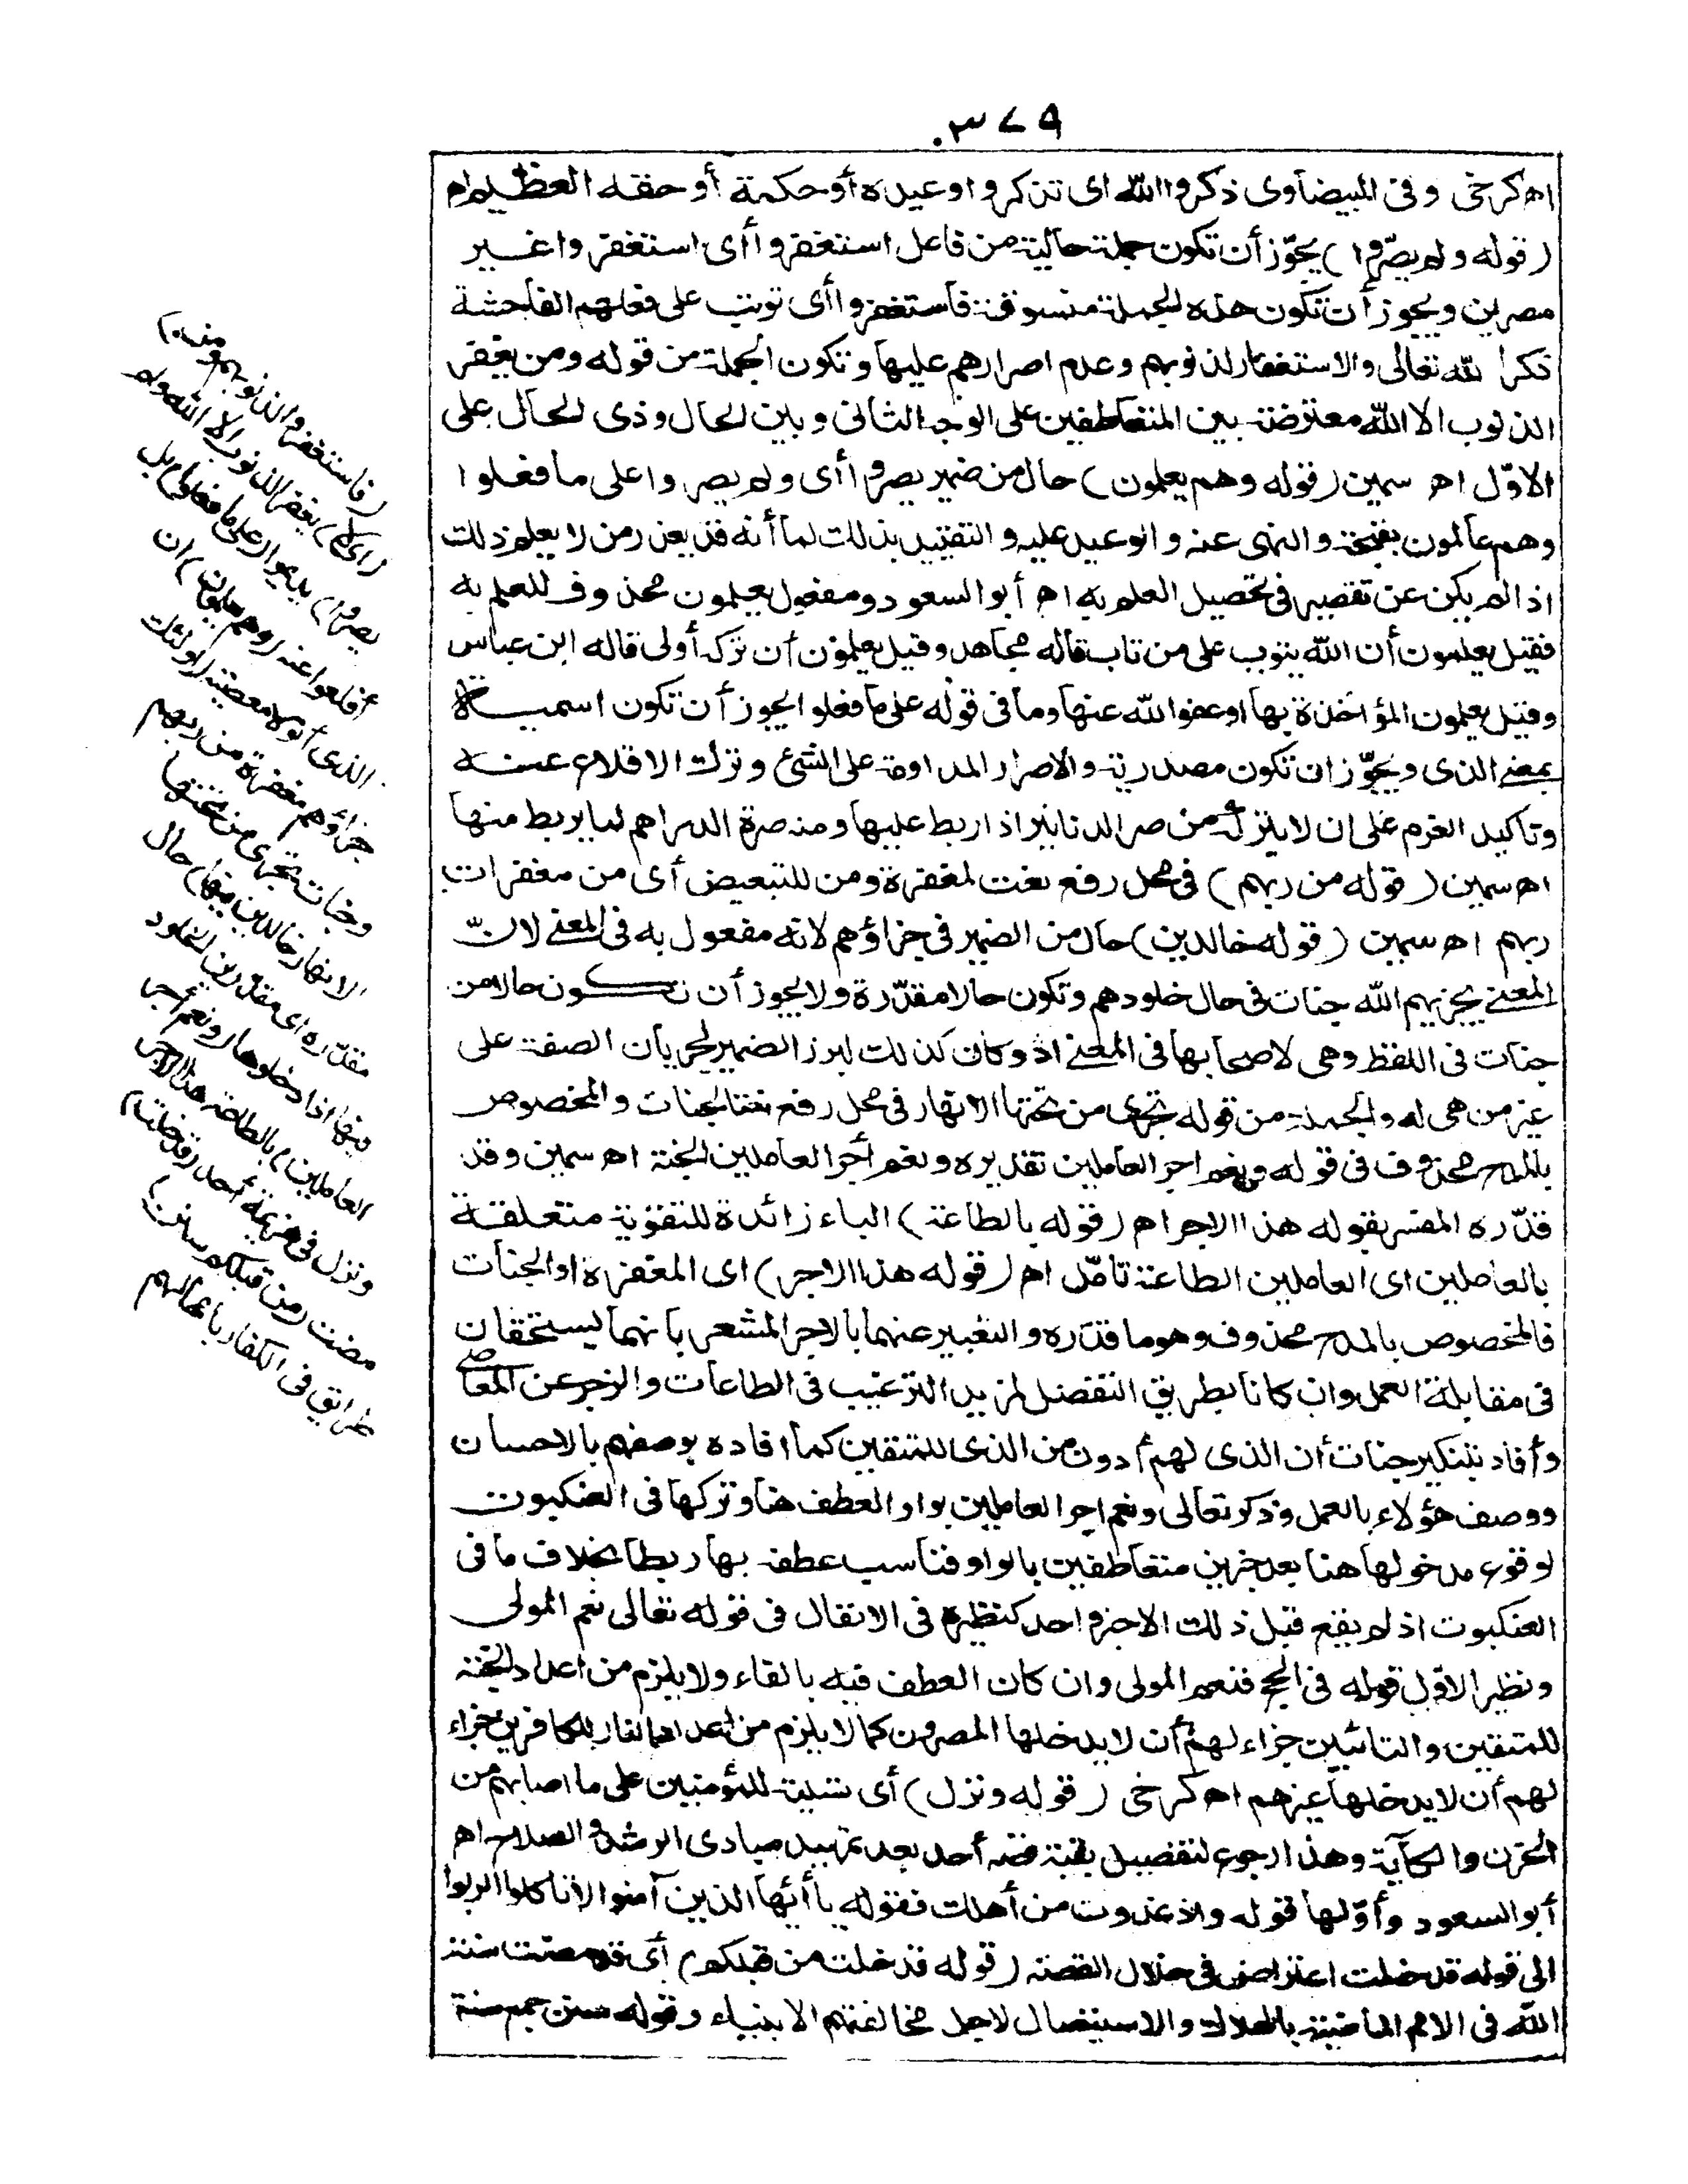 ٣٧٩
اه كرخى وفى البيضاوى ذكروا الله اى تذكروا وعيده أو حكمه أو حقه العظيم اه
(قوله ولم يصرّوا) يجوّز أن تكون جملة حالية من فاعل استغفروا أى استغفروا غير
مصرين ويجوز أن تكون هذه الجملة منسوقة فاستغفروا أى ترتب على فعلهم الفاحشة
ذكر الله تعالى والاستغفار لذنوبهم وعدم اصرارهم عليها وتكون الجملة من قوله ومن يغفر
الذنوب الا الله معترضة بين المتعاطفين على الوجه الثانى وبين الحال وذى الحال على
الاوّل اه سمين (قوله وهم يعلمون) حال من ضمير يصروا أى ولم يصروا على ما فعلوا
وهم عالمون بقبحه والنهى عنه والوعيد عليه والتقييد بذلك لما أنه قد يعذر من لا يعلم ذلك
اذا لم يكن عن تقصير فى تحصيل العلم به اه أبو السعود ومفعول يعلمون محذوف للعلم به
فقيل يعلمون أن الله يتوب على من تاب قاله مجاهد وقيل يعلمون أن تركه أولى قاله ابن عباس
وقيل يعلمون المؤاخذة بها او عفو الله عنها وما فى قوله على ما فعلوا يجوز أن تكون اسمية
بمعنى الذى ويجوّز ان تكون مصدرية والاصرار المداومة على الشئ وترك الاقلاع عنه
وتاكيد العزم على ان لا يتركه من صر الدنانير اذا ربط عليها ومنه صرة الدراهم لما يربط منها
اه سمين (قوله من ربهم) فى محل رفع نعت لمغفرة ومن للتبعيض أى من مغفرات
ربهم اه سمين (قوله خالدين) حال من الضمير فى جزاؤهم لانه مفعول به فى المعنى لانّ
المعنى يجزيهم الله جنات فى حال خلودهم وتكون حالا مقدّرة ولا يجوز أن تكون حالا من
جنات فى اللفظ وهى لاصحابها فى المعنى اذ لو كان كذلك لبرز الضمير لجريان الصفة على
غير من هى له والجملة من قوله تجرى من تحتها الانهار فى محل رفع نعتا لجنات والمخصوص
بالمدح محذوف فى قوله ونعم اجر العاملين تقديره ونعم أجر العاملين الجنة اه سمين وقد
قدّره المفسر بقوله هذا الاجر اه (قوله بالطاعة) الباء زائدة للتقوية متعلقة
بالعاملين اى العاملين الطاعة تامّل اه (قوله هذا الاجر) اى المغفرة او الجنات
فالمخصوص بالمدح محذوف وهو ما قدّره والتعبير عنهما بالاجر المشعر بانهما يستحقان
فى مقابلة العمل وان كانا بطريق التفضل لمزيد الترغيب فى الطاعات والزجر عن المعاصى
وأفاد بتنكير جنات أن الذى لهم أدون من الذى للمتقين كما افاده بوصفهم بالاحسان
ووصف هؤلاء بالعمل وذكر تعالى ونعم اجر العاملين بواو العطف هنا وتركها فى العنكبوت
لوقوع مدخولها هنا بعد خبرين متعاطفين بالواو فناسب عطفه بها ربطا بخلاف ما فى
العنكبوت اذ لم يقع قبل ذلك الا خبر واحد كنظيره فى الانفال فى قوله تعالى نعم المولى
ونظير الاوّل قوله فى الحج فنعم المولى وان كان العطف فيه بالفاء ولا يلزم من اعداد الجنة
للمتقين والتائبين جزاء لهم أن لا يدخلها المصرون كما لا يلزم من اعداد النار للكافرين جزاء
لهم أن لا يدخلها غيرهم اه كرخى (قوله ونزل) أى تسلية للمؤمنين على ما اصابهم من
الحزن والكآبة وهذا رجوع لتفصيل بقية قصة أحد بعد تمهيد مبادى الرشد والصلاح اه
أبو السعود وأوّلها قوله واذ غدوت من أهلك فقوله يا أيها الذين آمنوا لا تاكلوا الربوا
الى قوله قد خلت اعتراض فى خلال القصة (قوله قد خلت من قبلكم) أى قد مضت سنة
الله فى الامم الماضية بالهلاك والاستئصال لاجل مخالفتهم الانبياء وقوله سنن جمع سنة
(فاستغفروا لذنوبهم ومن)
(اى لا) يغفر الذنوب الا الله ولم
يصروا) يديموا (على ما فعلوا) بل
أقلعوا عنه (وهم يعلمون) ان
الذى أتوه معصية (اولئك
جزاؤهم مغفرة من ربهم
وجنات تجرى من تحتها
الانهار خالدين فيها) حال
مقدّره اى مقدرين الخلود
فيها اذا دخلوها (ونعم أجر
العاملين) بالطاعة هذا الاجر
ونزل فى هزيمة أحد (قد خلت)
مضت (من قبلكم سنن)
طرائق فى الكفار بامهالهم